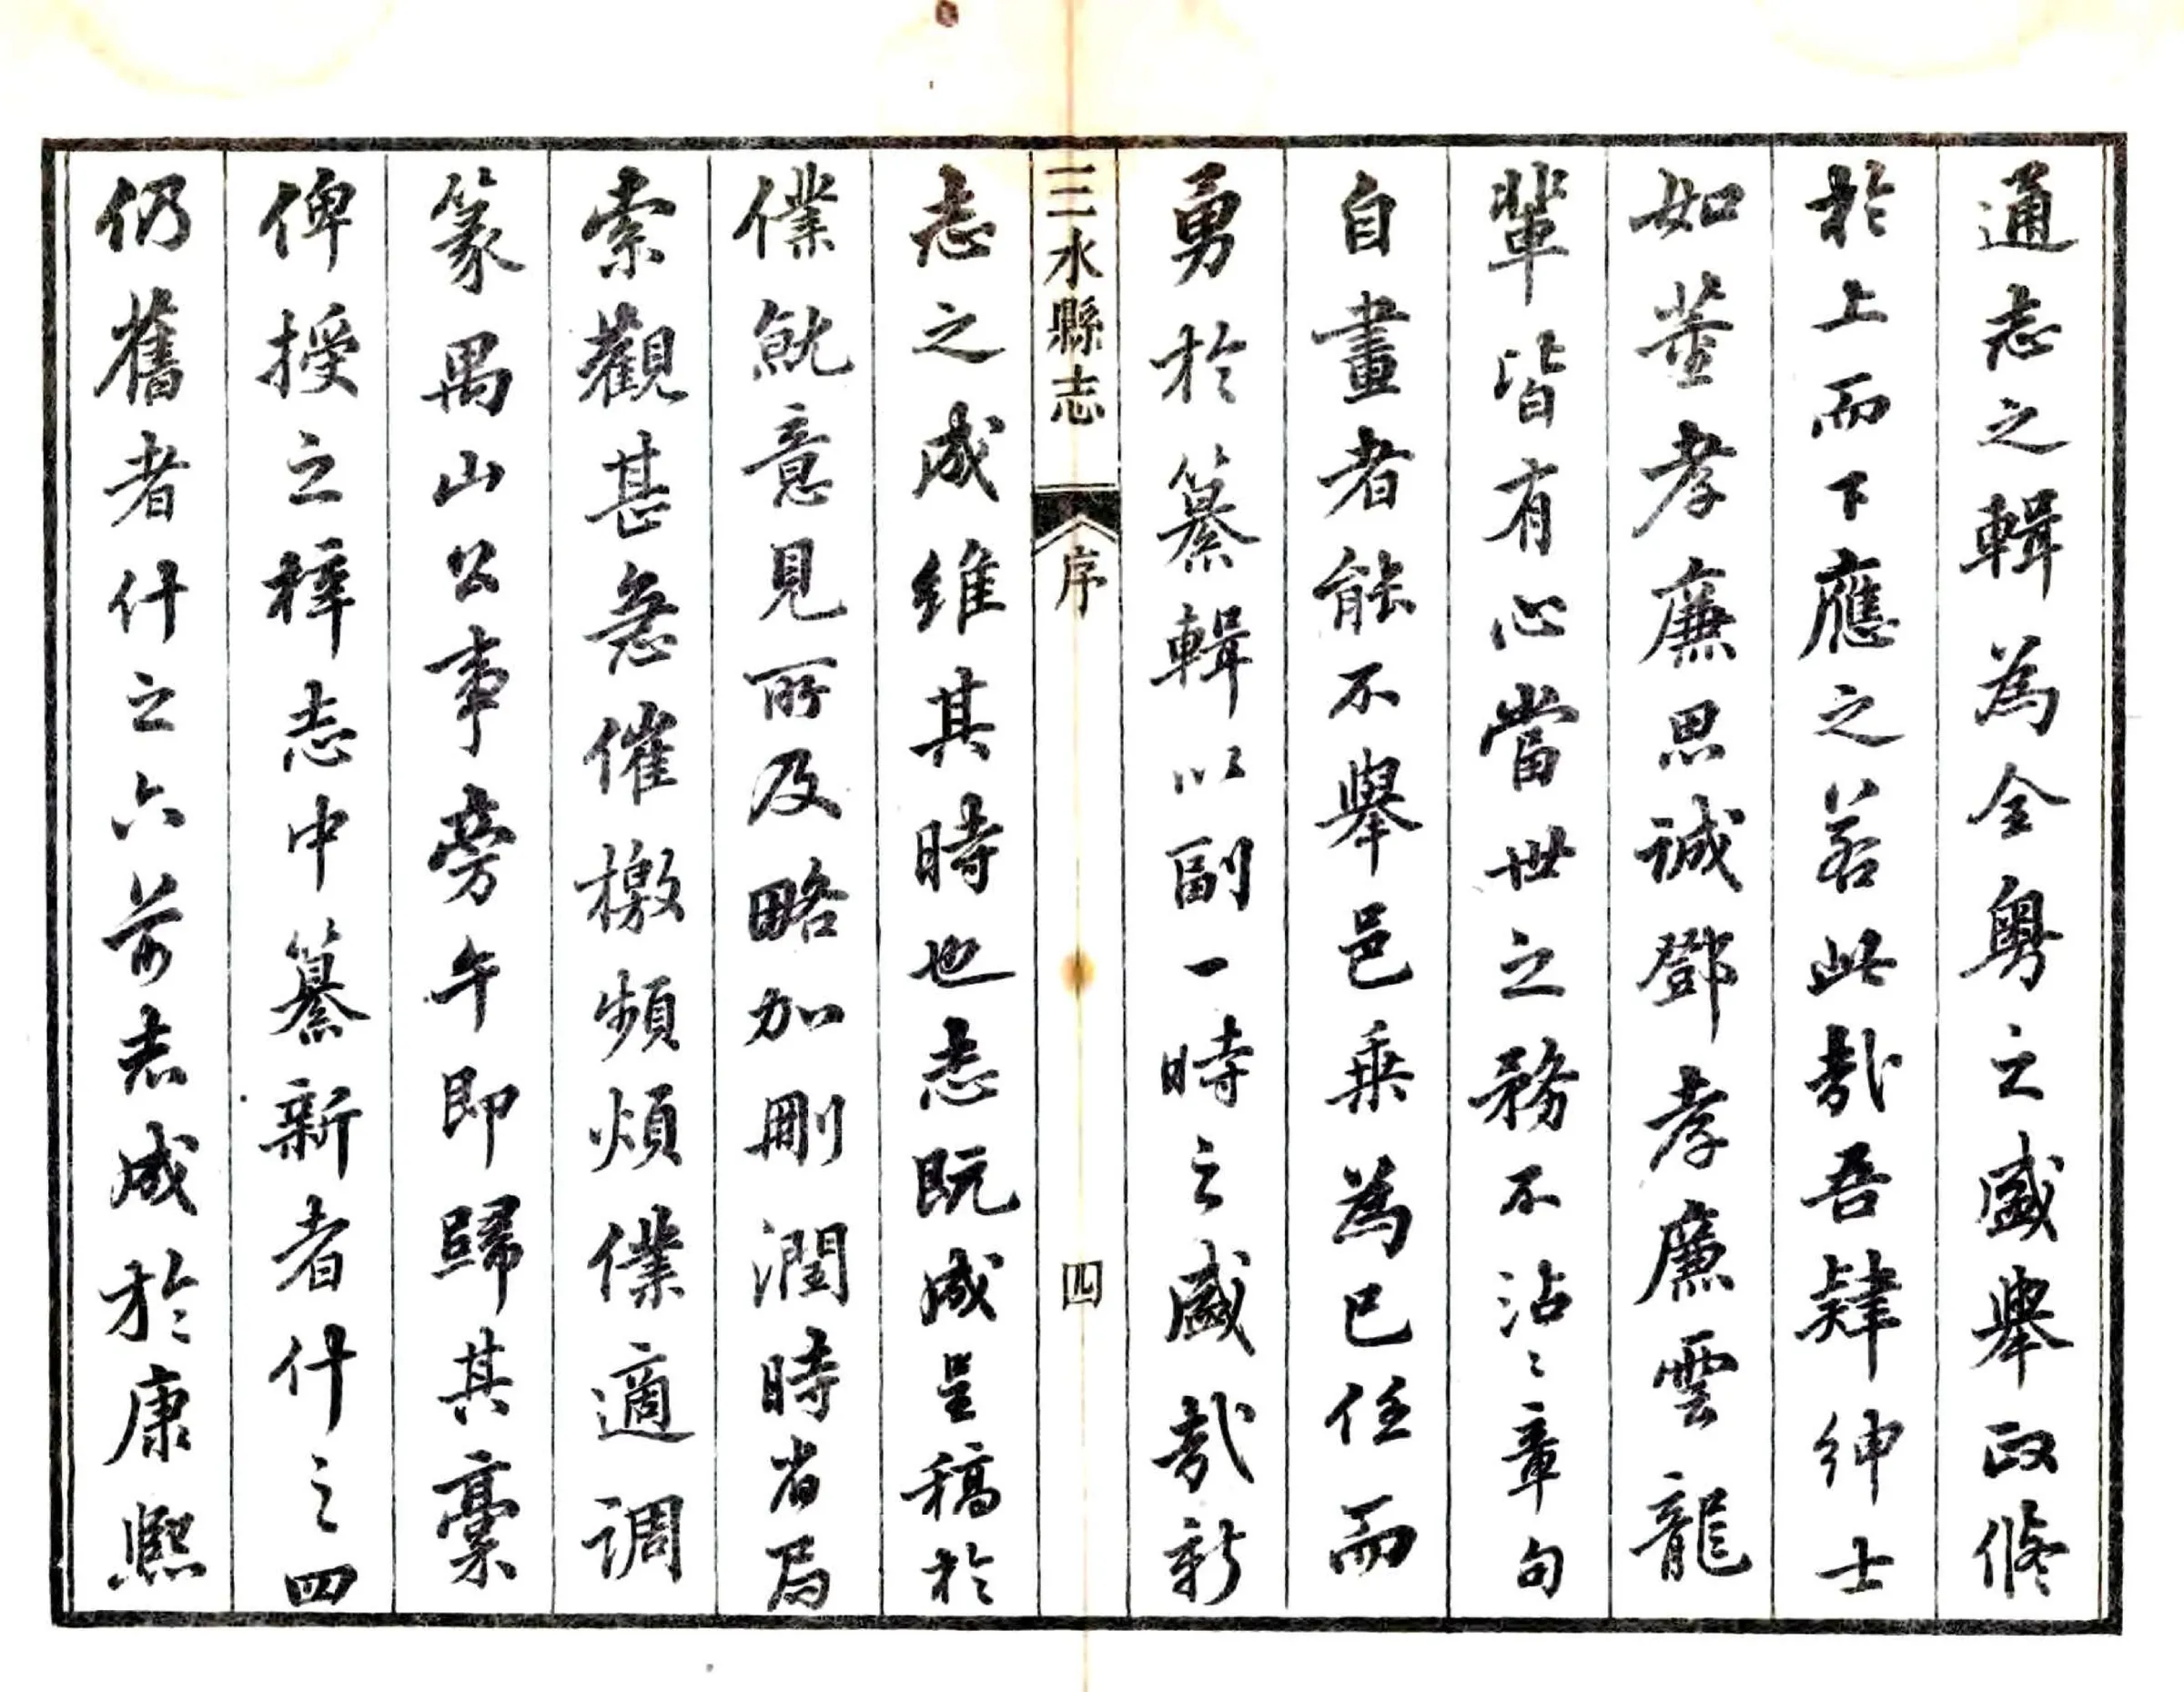 通志之輯為全粵之盛舉政脩
於上而下應之若此哉吾肄紳士
如董孝廉思誠鄧孝廉雲龍
輩皆有心當世之務不沾〻章句
自畫者能不舉邑乗為己任而
勇於纂輯以副一時之盛哉新
三水縣志
序
四
志之成維其時也志既成呈稿於
僕就意見所及略加刪潤時省局
索觀甚急催檄頻煩僕適調
篆禺山公事旁午即歸其稾
俾授之梓志中纂新者什之四
仍舊者什之六前志成於康熙